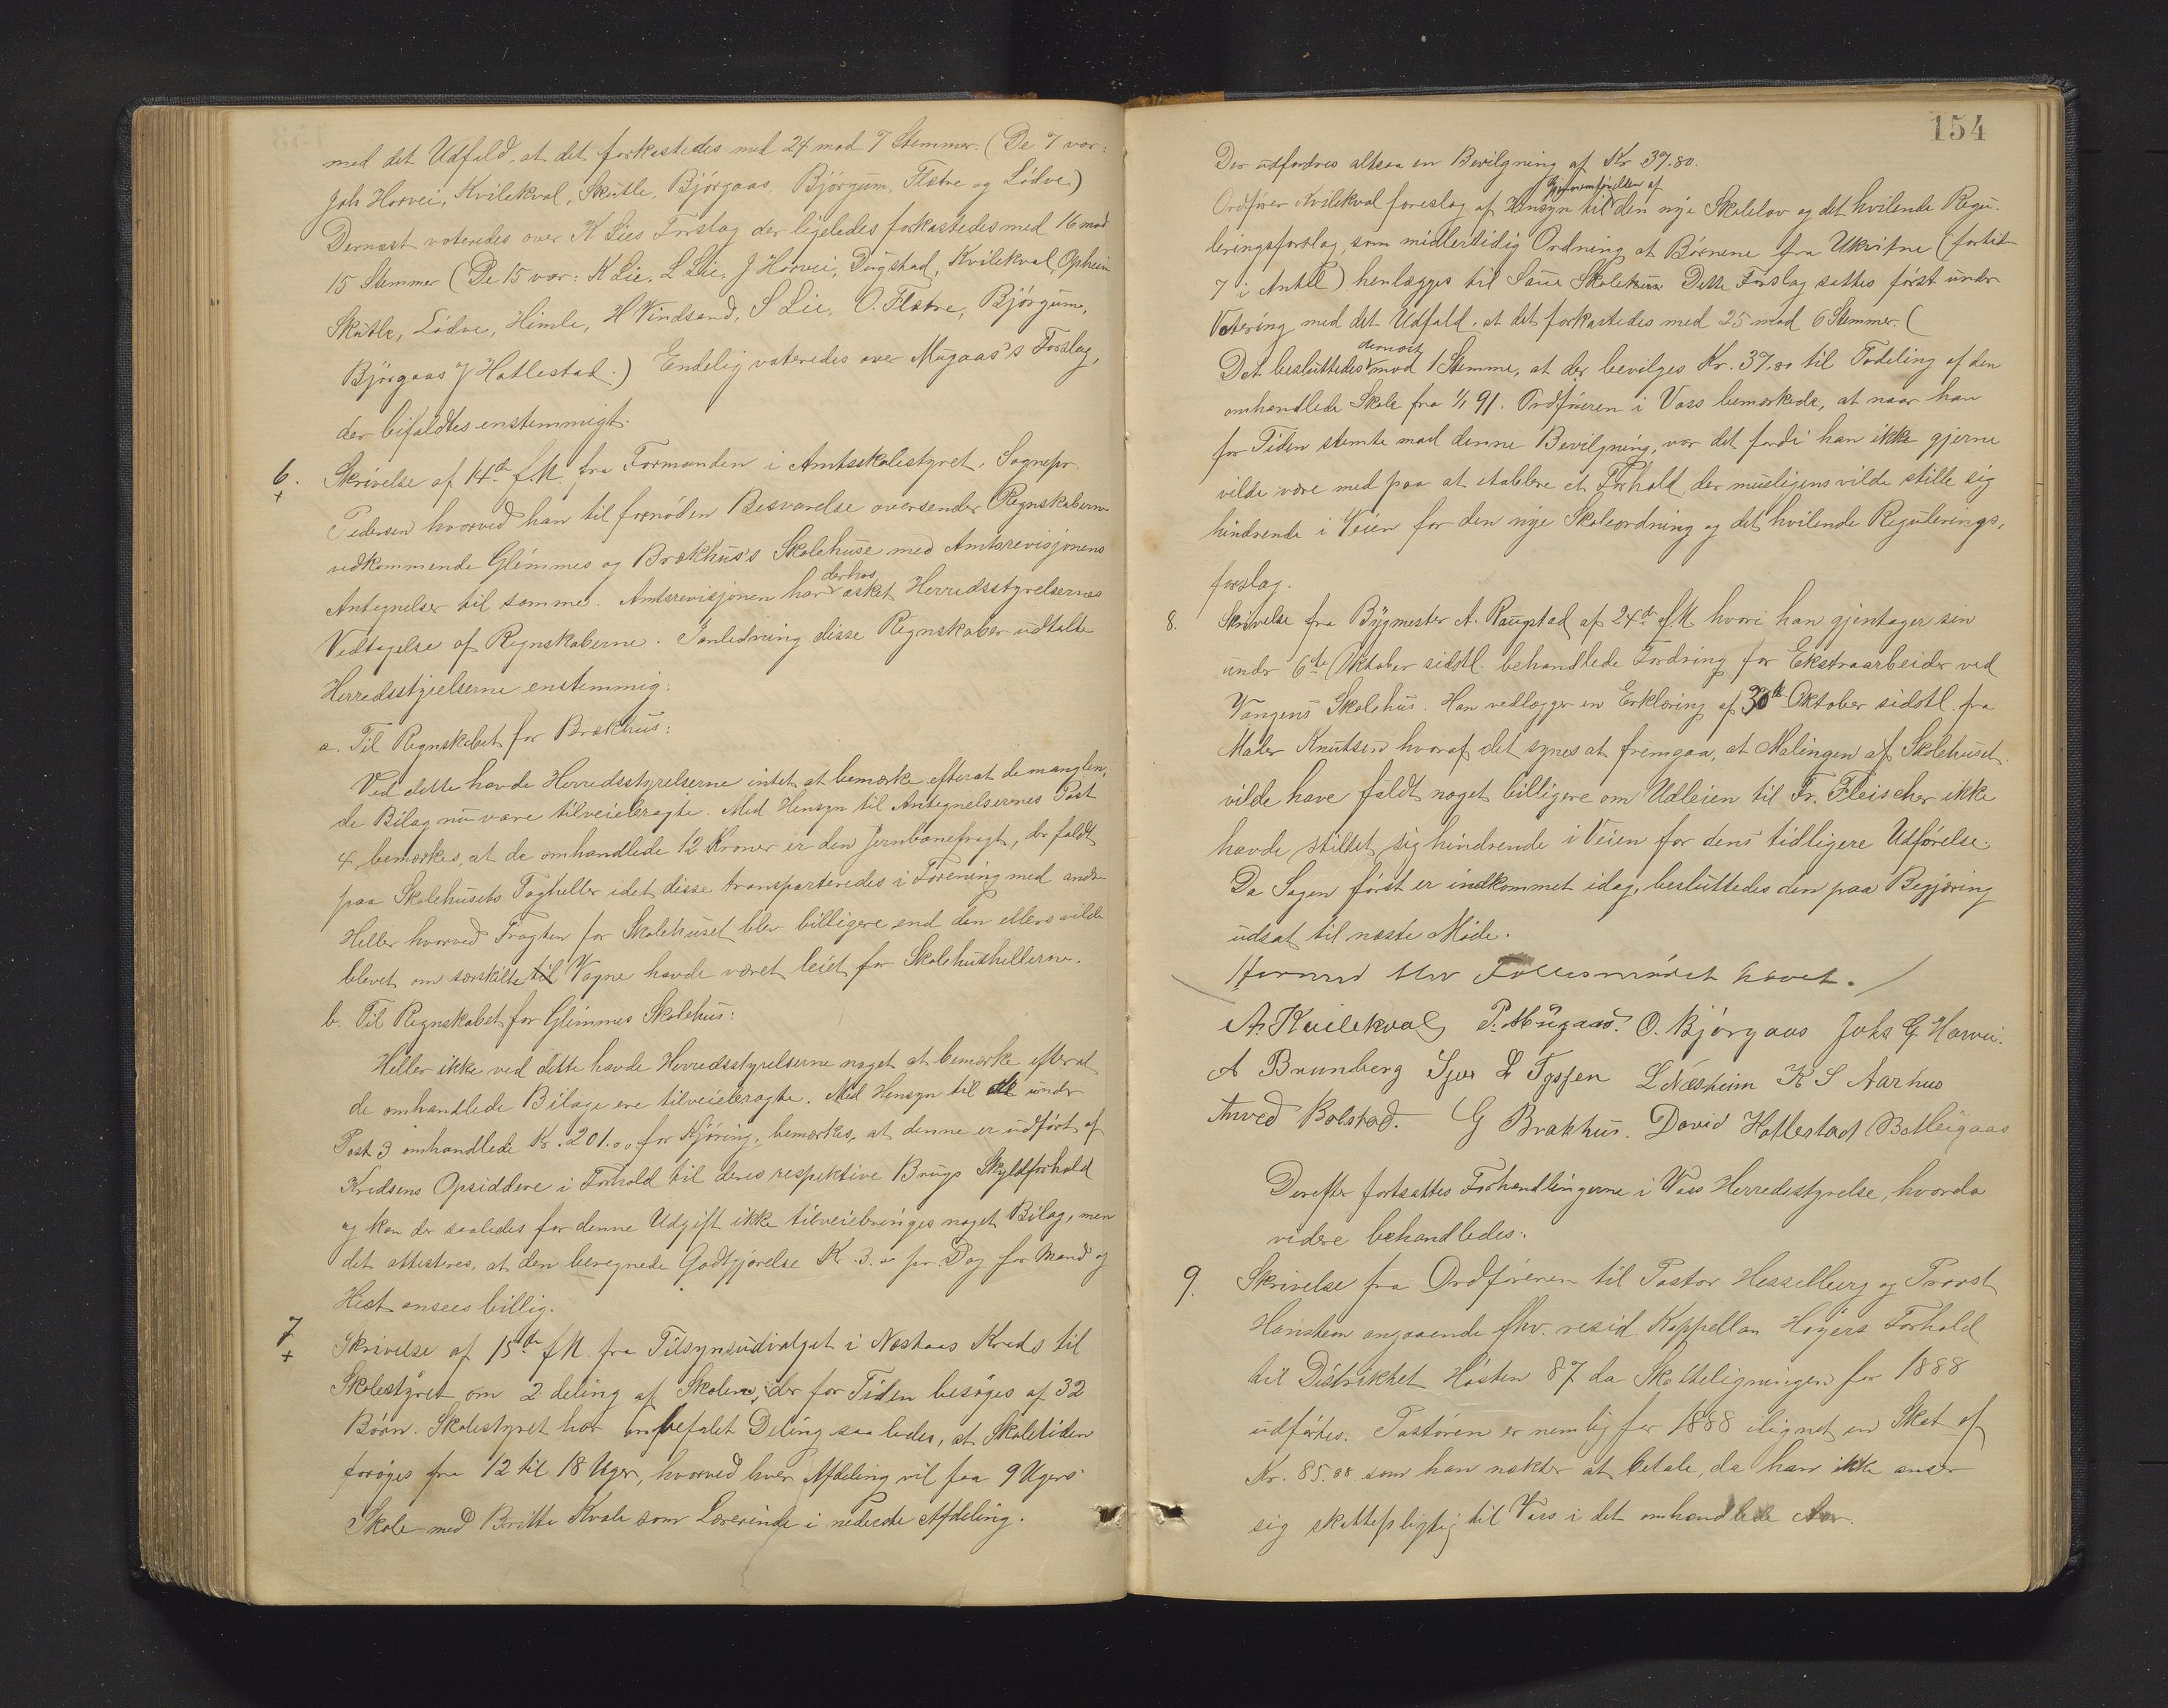 med det Udfald, at det forkastedes med 24 mod 7 Stemmer. (De 7 var:
Joh Horvei, Kvilekval, Skutle, Björgaas, Björgum, Flatre og Lödve)
Dernæst voteredes over K Lies Forslag der ligeledes forkastedes med 16 mod
15 Stemmer (De 15 var: K Lie, L Lie, J Horvei, Dugstad, Kvilekval, Opheim
Skutle, Lödve, Himle, H Vindsand, S Lie, O. Flatre, Björgum,
Björgaas J Hatlestad.) Endelig voteredes over Mugaas's Forslag,
der bifaldtes enstemmigt.
6. Skrivelse af 14de f.M. fra Formanden i Amtsskolestyret, Sognepr.
Pedersen hvorved han til fornöden Besvarelse oversender Regnskaberne
vedkommende Glimmes og Brækhus's Skolehuse med Amtsrevisjonens
Antegnelser til samme. Amtsrevisjonen har derhos æsket Herredsstyrelsernes
Vedtagelse af Regnskaberne. I anledning disse Regnskaber udtalte
Herredsstyrelserne enstemmig:
a. Til Regnskabet for Brækhus:
Ved dette havde Herredsstyrelserne intet at bemærke efterat de manglen,
de Bilag nu vare tilveiebragte. Med Hensyn til Antegnelsernes Post
4 bemærkes, at de omhandlede 12 Kroner er den Jernbanefragt, der faldt
paa Skolehusets Tagheller idet disse transporteredes i Forening med andre
Heller hvorved Fragten for Skolehuset blev billigere end den ellers vilde
blevet om særskilte til Vogne havde været leiet for Skolehushellerne.
b. Til Regnskabet for Glimmes Skolehus:
Heller ikke ved dette havde Herredsstyrelserne noget at bemærke efterat
de omhandlede Bilage ere tilveiebragte. Med Hensyn til de under
Post 3 omhandlede Kr. 201.00 for Kjöring, bemærkes, at denne er udfört af
Kredsens Opsiddere i Forhold til deres respektive Brugs Skyldforhold
og kan der saaledes for denne Udgift ikke tilveiebringes noget Bilag, men
det attesteres, at den beregnede Godtgjörelse Kr. 3.00 pr. Dag for Mand og
Hest ansees billig.
7 Skrivelse af 15de f.M. fra Tilsynsudvalget i Næstaas Kreds til
Skolestyret om 2 deling af Skolen, der for Tiden besöges af 32
Börn. Skolestyret har anbefalet Deling saa ledes, at Skoletiden
foröges fra 12 til 18 Uger, hvorved hver Afdeling vil faa 9 Ugers
Skole med Britta Kvale som Lærerinde i nederste Afdeling.
154
Der udfordres altsaa en Bevilgning af Kr 37.80.
Ordförer Kvilekval foreslog af Hensyn til Gjennemförelsen af den nye Skolelov og det hvilende Regu-
leringsforslag, som midlertidig Ordning at Börnene fra Ukvitne (fortid
7 i Antal) henlægges til Saue Skolehus. Dette Forslag sattes först under
Votering med det Udfald, at det forkastedes med 25 mod 6 Stemmer. (
Det besluttedes dernæst mod 1 Stemme, at der bevilges Kr. 37.80 til Todeling af den
omhandlede Skole fra 1/1 91. Ordföreren i Voss bemærkede, at naar han
for Tiden stemte mod denne Bevilgning, var det fordi han ikke gjerne
vilde være med paa at etablere et Forhold, der muligens vilde stille sig
hindrende i Veien for den nye Skoleordning og det hvilende Regulerings,
forslag.
8. Skrivelse fra Bygmester A. Raugstad af 24de f.M. hvori han gjentager sin
under 6te Oktober sidstl. behandlede Fordring for Ekstraarbeider ved
Vangens Skolehus. Han vedlægger en Erklæring af 30te Oktober sidstl. fra
Maler Knutsen hvoraf det synes at fremgaa, at Malingen af Skolehuset
vilde have faldt noget billigere om Udleien til Fr. Fleischer ikke
havde stillet sig hindrende i Veien for dens tidligere Udförelse.
Da Sagen först er indkommet idag, besluttedes den paa Begjæring
udsat til næste Möde.
Hermed blev Fællesmödet hævet.
A. Kvilekval P. Mugaas. O. Björgaas Johs G. Horvei.
A Brunberg Sjur L Tyssen L Næsheim K S Aarhus
Anved Bolstad. G Brækhus. David Hatlestad
Derefter fortsattes Forhandlingerne i Voss Herredsstyrelse, hvorda
videre behandledes:
9. Skrivelse fra Ordföreren til Pastor Hesselberg og Provst
Hansteen angaaende fhv. resid Kappellan Höyers Forhold
til Distriktet Hösten 87 da Skatteligningen for 1888
udförtes. Pastoren er nemlig for 1888 ilignet en Skat af
Kr. 85.88 som han nekter at betale, da han ikke anser
sig skattepligtig til Voss i det omhandlede Aar.